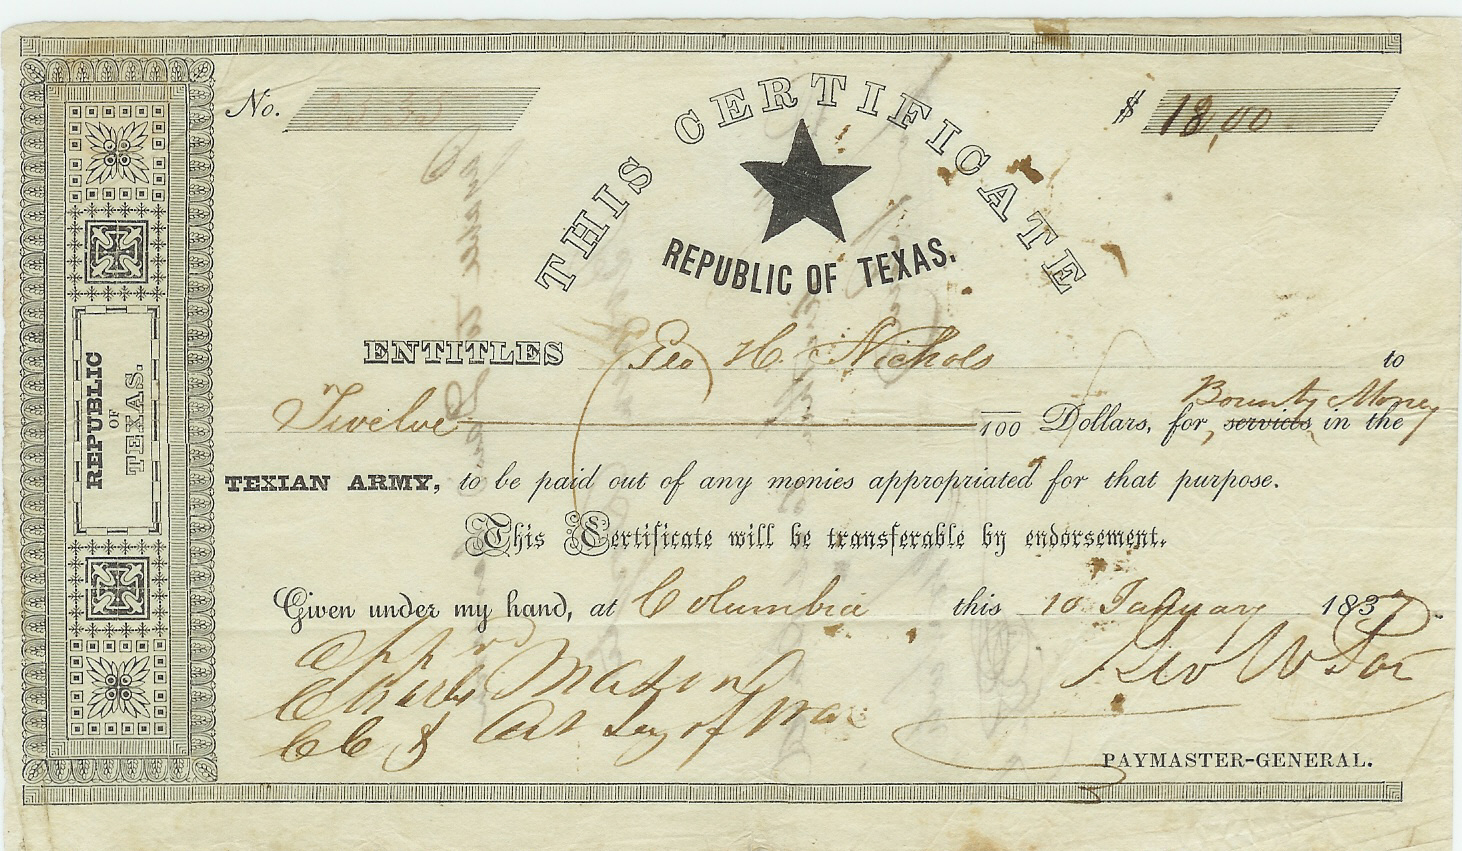 No. $ 18,00
THIS CERTIFICATE
REPUBLIC OF TEXAS.
ENTITLES Geo H. Nichols to
Bounty Money
Twelve 100 Dollars, for services in the
TEXIAN ARMY, to be paid out of any monies appropriated for that purpose.
This Certificate will be transferable by endorsement.
Given under my hand, at Columbia this 10 January 1837.
App rd
Charles Mason
Geo W Poe
CC & Act Secy of War
PAYMASTER-GENERAL.
REPUBLIC
OF
TEXAS.